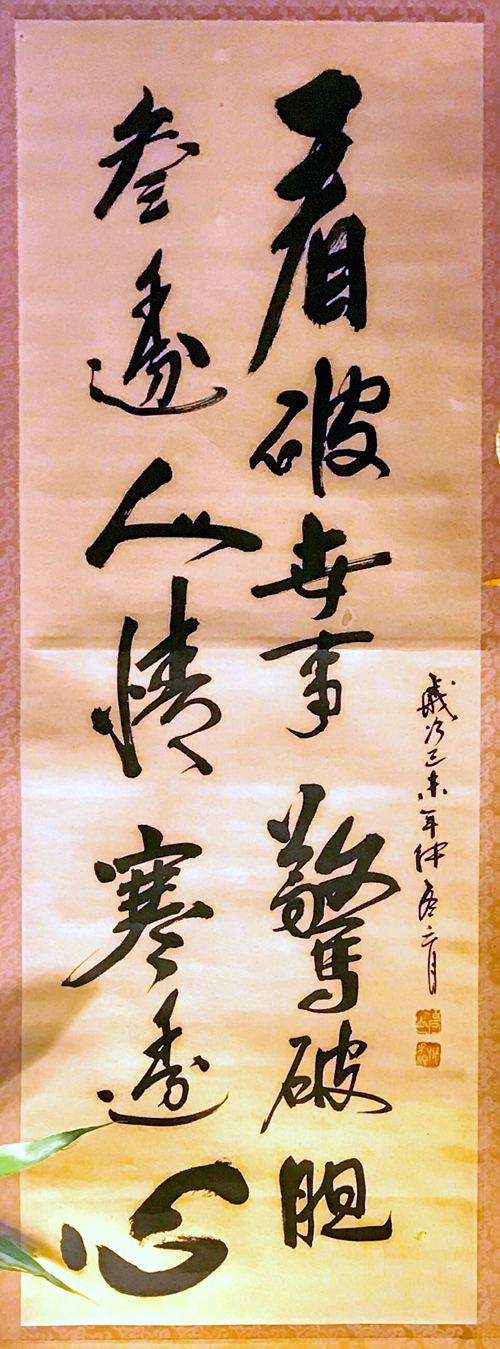 歲次己未年仲春二月
看破世事驚破胆
参透人情寒透心